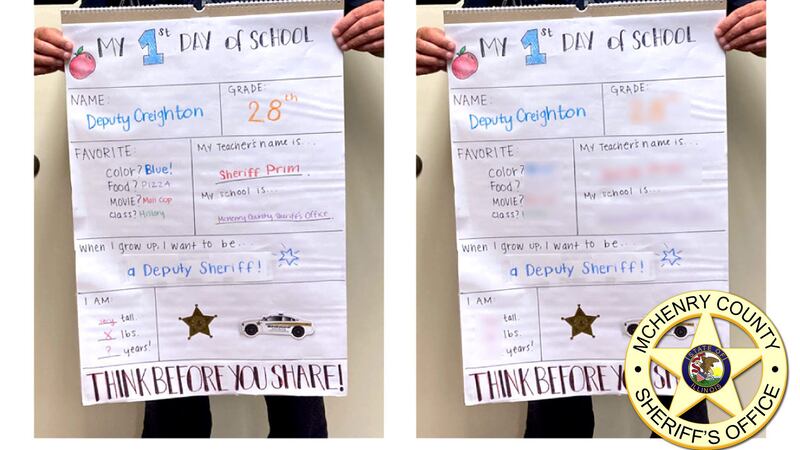 MY 1st DAY of SCHOOL
NAME:
Deputy Creighton
GRADE:
28th
FAVORITE:
COLOR? Blue!
FOOD? PIZZA
MOVIE? Mall Cop
CLASS? History
My Teacher's name is...
Sheriff Prim.
My school is...
McHenry County Sheriff's Office.
When I grow up, I want to be...
a Deputy Sheriff!
I AM:
very tall.
X lbs.
? years!
THINK BEFORE YOU SHARE!
MY 1st DAY of SCHOOL
NAME:
Deputy Creighton
GRADE:
FAVORITE:
COLOR?
FOOD?
MOVIE?
CLASS?
My Teacher's name is...
My school is...
When I grow up, I want to be...
a Deputy Sheriff!
I AM:
tall.
lbs.
years!
THINK BEFORE YOU
MCHENRY COUNTY
STATE OF
ILLINOIS
SHERIFF'S OFFICE